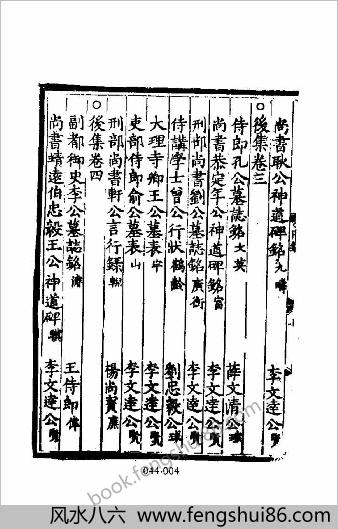 尚書耿公神道碑銘 九疇 李文達公賢
○後集卷三
侍郎孔公墓誌銘 文英 薛文清公瑄
尚書恭定年公神道碑銘 富 李文達公賢
刑部尚書劉公墓誌銘 廣衡 李文達公賢
侍講學士曾公行狀 鶴齡 劉忠毅公球
大理寺卿王公墓表 宇 李文達公賢
吏部侍郎俞公墓表 山 李文達公賢
刑部尚書軒公言行錄 輗 楊尚寶廉
○後集卷四
副都御史李公墓誌銘 濬 王侍郎偉
尚書靖遠伯忠毅王公神道碑 驥 李文達公賢
044-004
book.fengshui86.com
风水八六 www.fengshui86.com